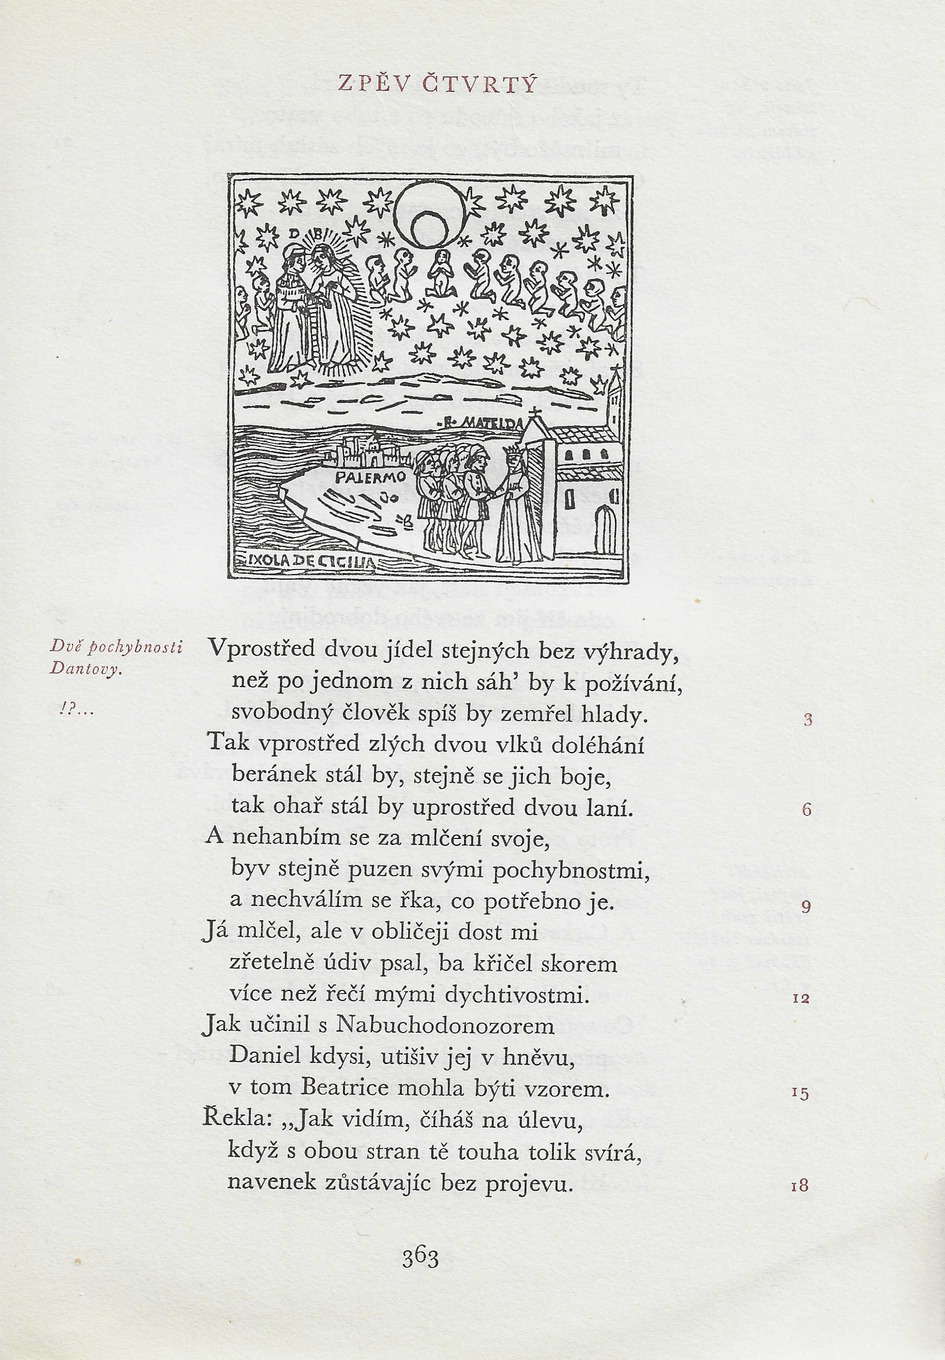 ZPĚV ČTVRTÝ
D B
F. MATELDA
PALERMO
IXOLA DE CICILIA
Dvě pochybnosti
Dantovy.
!?...
Vprostřed dvou jídel stejných bez výhrady,
než po jednom z nich sáh’ by k požívání,
svobodný člověk spíš by zemřel hlady.
3
Tak vprostřed zlých dvou vlků doléhání
beránek stál by, stejně se jich boje,
tak ohař stál by uprostřed dvou laní.
6
A nehanbím se za mlčení svoje,
byv stejně puzen svými pochybnostmi,
a nechválím se řka, co potřebno je.
9
Já mlčel, ale v obličeji dost mi
zřetelně údiv psal, ba křičel skorem
více než řečí mými dychtivostmi.
12
Jak učinil s Nabuchodonozorem
Daniel kdysi, utišiv jej v hněvu,
v tom Beatrice mohla býti vzorem.
15
Řekla: „Jak vidím, číháš na úlevu,
když s obou stran tě touha tolik svírá,
navenek zůstávajíc bez projevu.
18
363